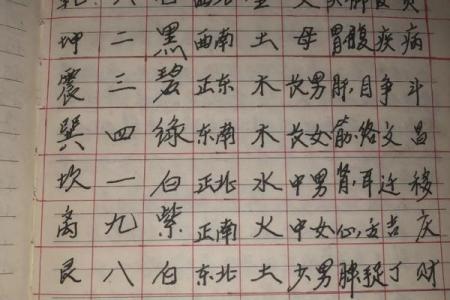 乾 六 白 西北 金
坤 二 黑 西南 土 母 胃腹 疾 病
震 三 碧 正东 木 长男 肝,目 争 斗
巽 四 绿 东南 木 长女 筋,络 文 昌
坎 一 白 正北 水 中男 肾,耳 迁 移
离 九 紫 正南 火 中女 心, 吉 庆
艮 八 白 东北 土 少男 丁 财